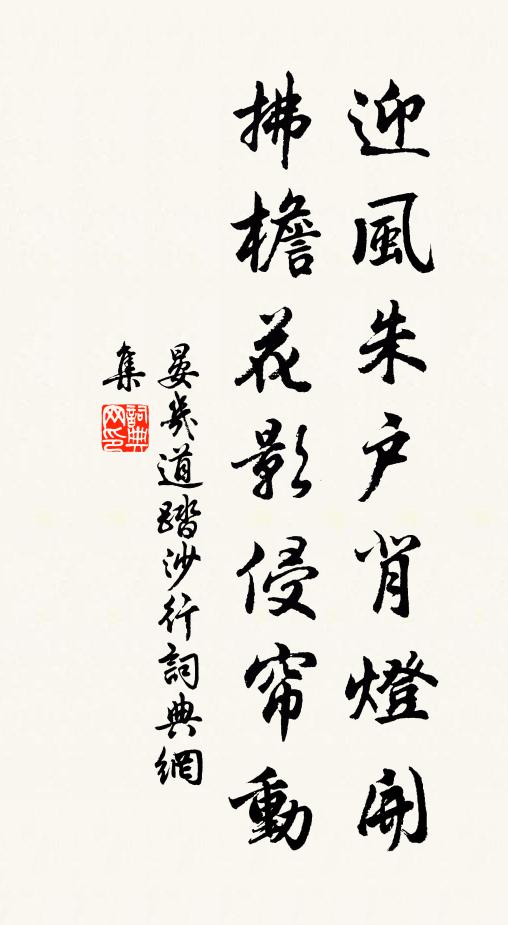 迎風朱户背燈開
拂檐花影侵帘動
晏幾道踏沙行詞典網
集
詞典
网印